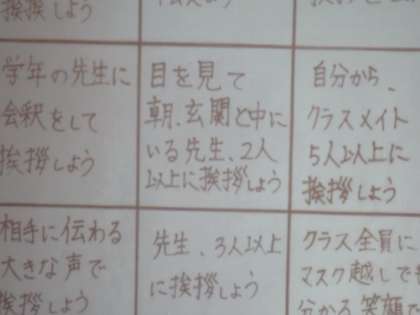 挨拶しよう
学年の先生に
会釈をして
挨拶しよう
目を見て
朝、玄関と中に
いる先生、2人
以上に挨拶しよう
自分から、
クラスメイト
5人以上に
挨拶しよう
相手に伝わる
大きな声で
挨拶しよう
先生、3人以上
に挨拶しよう
クラス全員に
マスク越しでも
分かる笑顔で